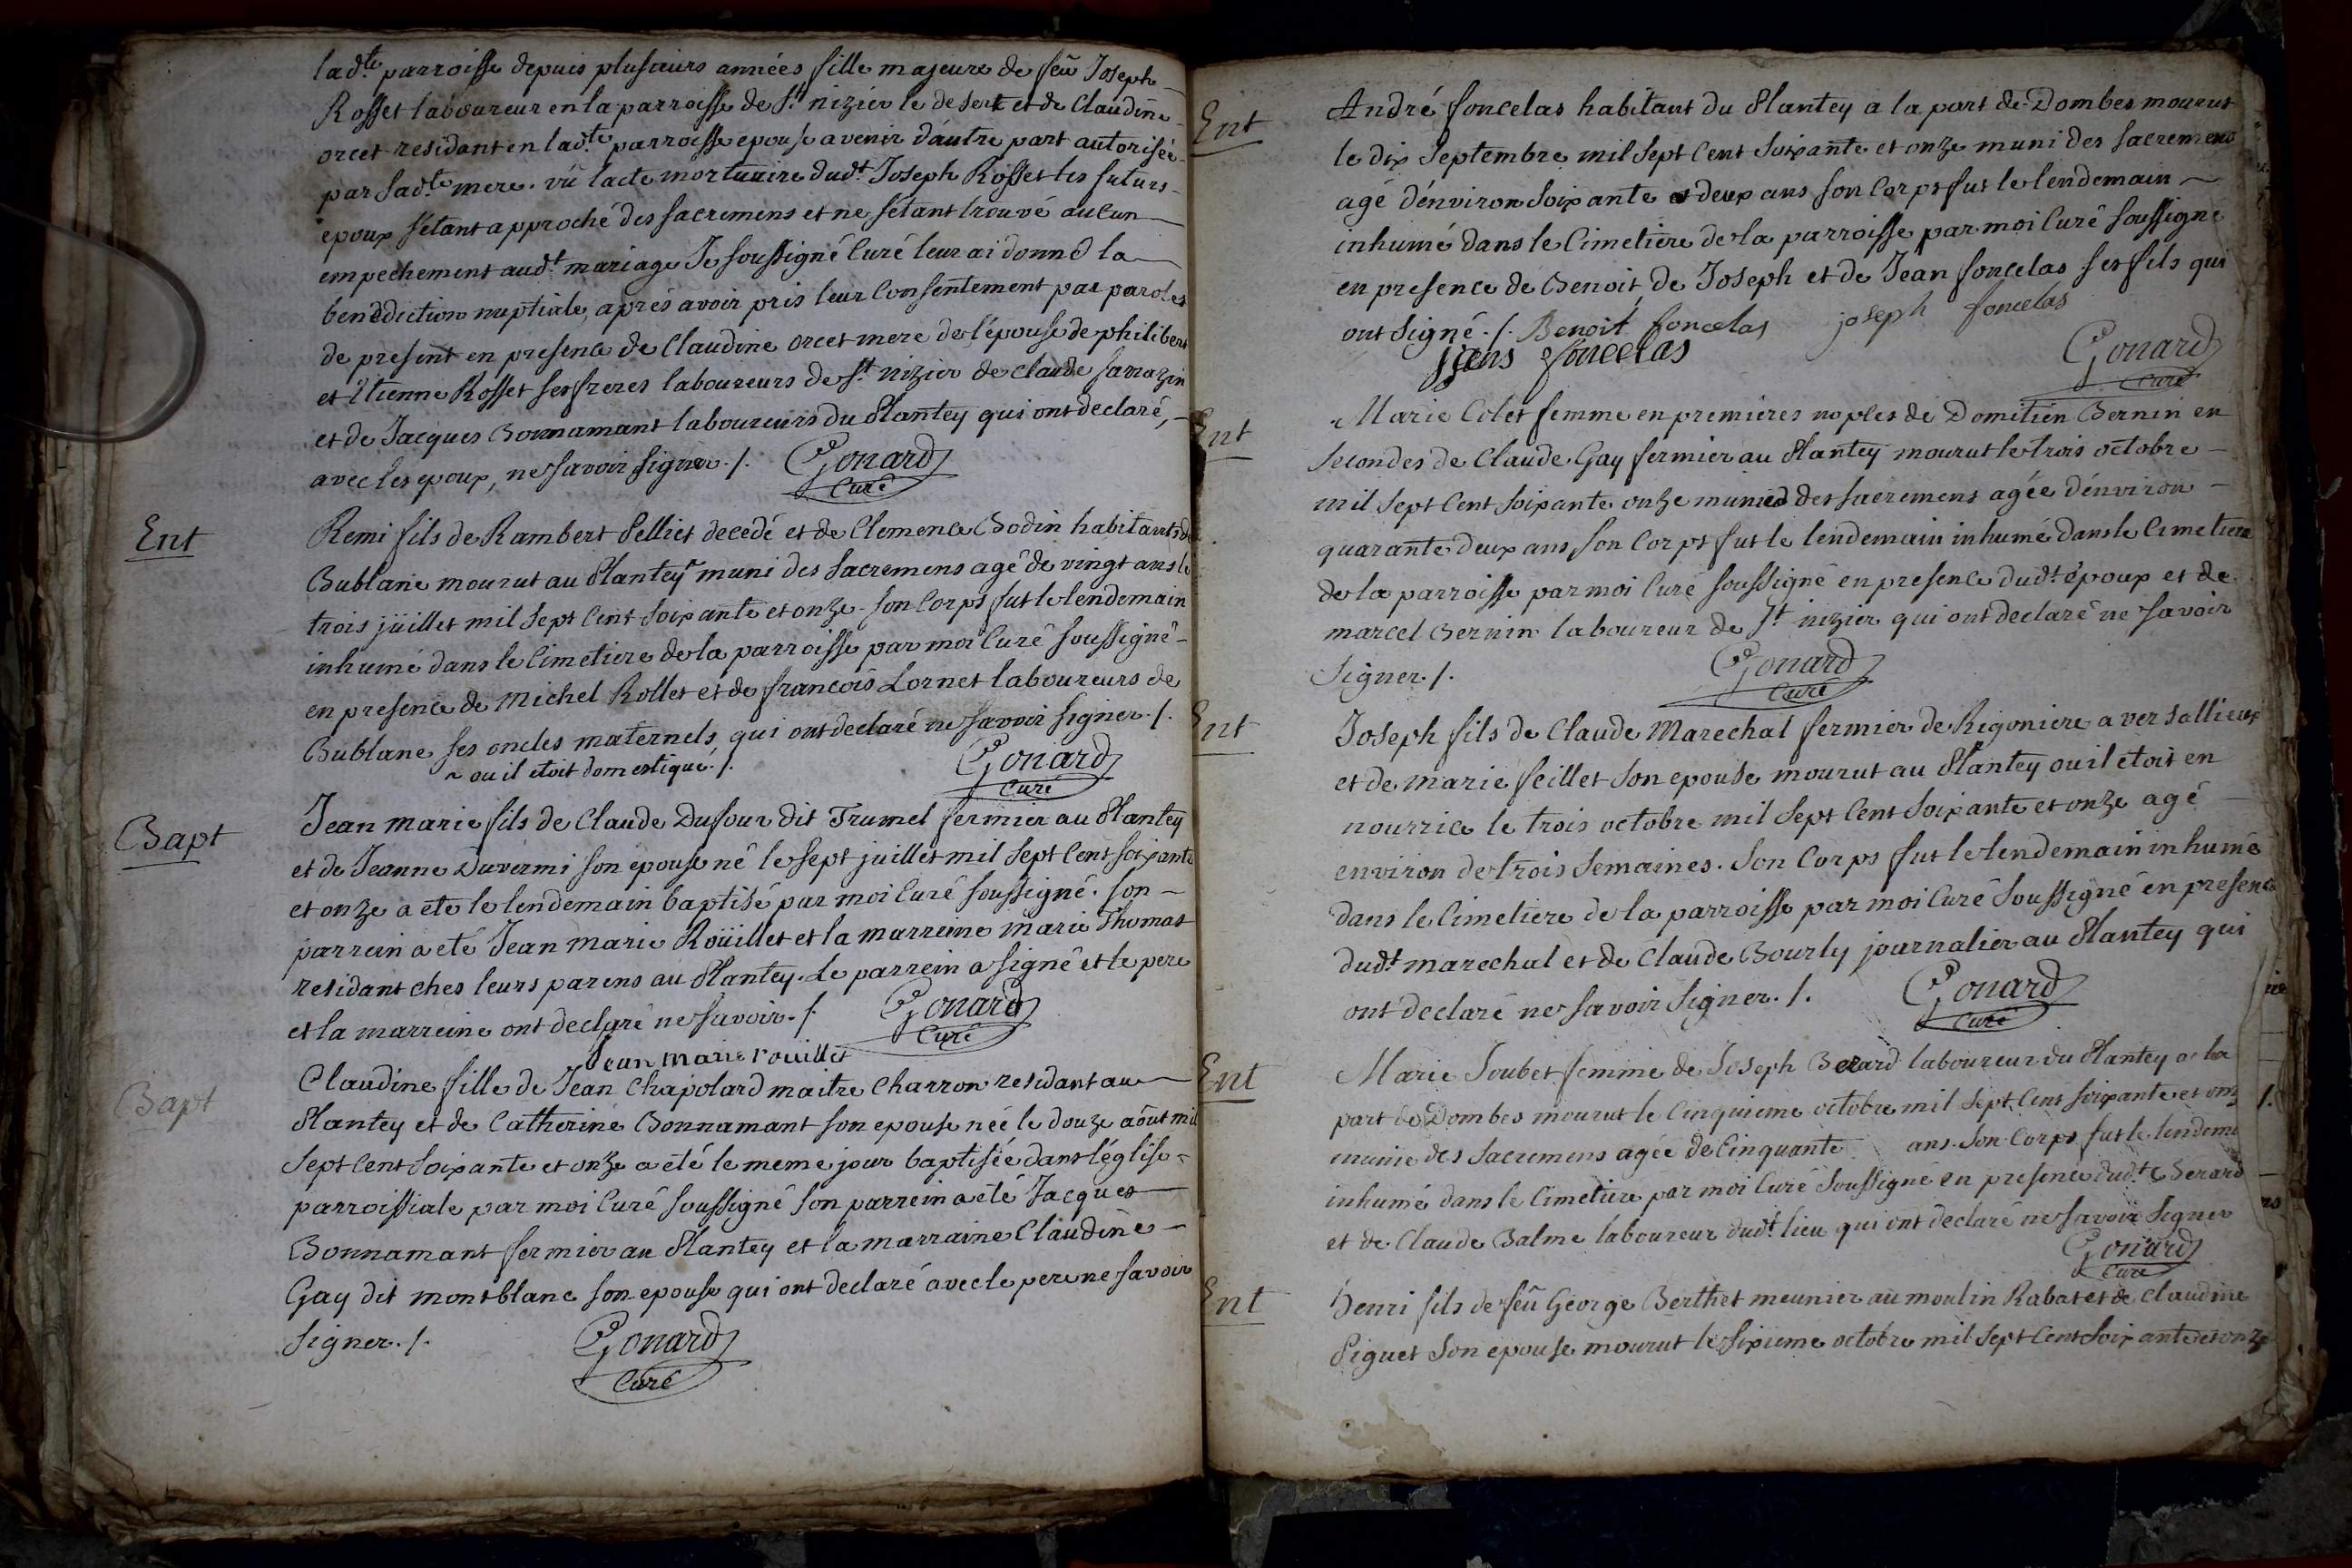 lad.te parroisse depuis plusieurs années fille majeure de feû Joseph
Rosset laboureur en la parroisse de S.t nizier le desert et de Claudine
orcet residant en lad.te parroisse epouse avenir d'autre part autorisée
par sad.te mere. vû lacte mortuaire dud.t Joseph Rosset les futurs
epoux s'étant approché des sacremens et ne s'étant trouvé aucun
empechement aud.t mariage Je soussigné Curé leur ai donné la
benediction nuptiale, aprés avoir pris leur Consentement par paroles
de present en presence de Claudine orcet mere de l'épouse de philibert
et Etienne Rosset ses freres laboureurs de S.t nizier de claude sarrazin
et de Jacques Bonnamant laboureurs du Plantey qui ont declaré,
avec les epoux, ne savoir signer ./. Gonard
Curé
Ent
Remi fils de Rambert Pelliet decedé et de Clemence Bodin habitants de
Bublane mourut au Plantey muni des Sacremens agé de vingt ans le
trois juillet mil Sept Cent Soixante et onze. son Corps fut le lendemain
inhumé dans le Cimetiere de la parroisse par moi Curé soussigné
en presence de Michel Rollet et de francois Lornet laboureurs de
Bublane ses oncles maternels, qui ont declaré ne savoir signer ./.
~ ou il etoit domestique ./. Gonard
Curé
Bapt
Jean marie fils de Claude Dufour dit Trumel fermier au Plantey
et de Jeanne Duvermi son epouse né le sept juillet mil Sept Cent soixante
et onze a eté le lendemain baptisé par moi Curé soussigné. son
parrein a eté Jean marie Roüillet et la marreine marie Thomas
residant ches leurs parens au Plantey. Le parrein a signé et le pere
et la marreine ont declaré ne savoir ./. Gonard
Curé
Jean marie rouillet
Bapt
Claudine fille de Jean Chapolard maitre Charron residant au
Plantey et de Catherine Bonnamant son epouse née le douze aôut mil
Sept Cent Soixante et onze a eté le meme jour baptisée dans l'église
parroissiale par moi Curé soussigné son parrein a eté Jacques
Bonnamant fermier au Plantey et la marraine Claudine
Gay dit montblanc son epouse qui ont declaré avec le pere ne savoir
Signer ./. Gonard
Curé
Ent
André foncelas habitant du Plantey a la part de Dombes mourut
le dix Septembre mil Sept Cent Soixante et onze muni des sacremens
agé d'environ Soixante et deux ans son Corps fut le lendemain
inhumé dans le Cimetiere de la parroisse par moi Curé soussigné
en presence de Benoit, de Joseph et de Jean foncelas ses fils qui
ont Signé ./. Benoit foncelas joseph foncelas
jens foncelas Gonard
Curé
Ent
Marie Colet femme en premieres noples de Domitien Bernin en
secondes de Claude Gay fermier au Plantey mourut le trois octobre
mil Sept Cent Soixante onze munied des sacremens agée d'environ
quarante deux ans son Corps fut le lendemain inhumé dans le Cimetiere
de la parroisse par moi Curé soussigné en presence dud.t époux et de
marcel Bernin laboureur de S.t nizier qui ont declaré ne savoir
Signer ./. Gonard
Curé
Ent
Joseph fils de Claude Marechal fermier de Rigoniere a versallieux
et de marie feillet Son epouse mourut au Plantey ou il etoit en
nourrice le trois octobre mil Sept Cent Soixante et onze agé
environ de trois Semaines. Son Corps fut le lendemain inhumé
dans le Cimetiere de la parroisse par moi Curé Soussigné en presence
dud.t marechal et de Claude Bourly journalier au Plantey qui
ont declaré ne savoir Signer ./. Gonard
Curé
Ent
Marie Soubet femme de Joseph Berard laboureur du Plantey a la
part de Dombes mourut le Cinquieme octobre mil Sept Cent soixante et onz
munie des Sacremens agée de Cinquante ans. Son Corps fut le lendem
inhumé dans le Cimetiere par moi Curé Soussigné en presence dud.t Berard
et de Claude Balme laboureur dud.t lieu qui ont declaré ne savoir Signer
Gonard
Curé
Ent
henri fils de feû George Berthet meunier au moulin Rabat et de Claudine
Piguet Son epouse mourut le Sixieme octobre mil Sept Cent Soixante et onze